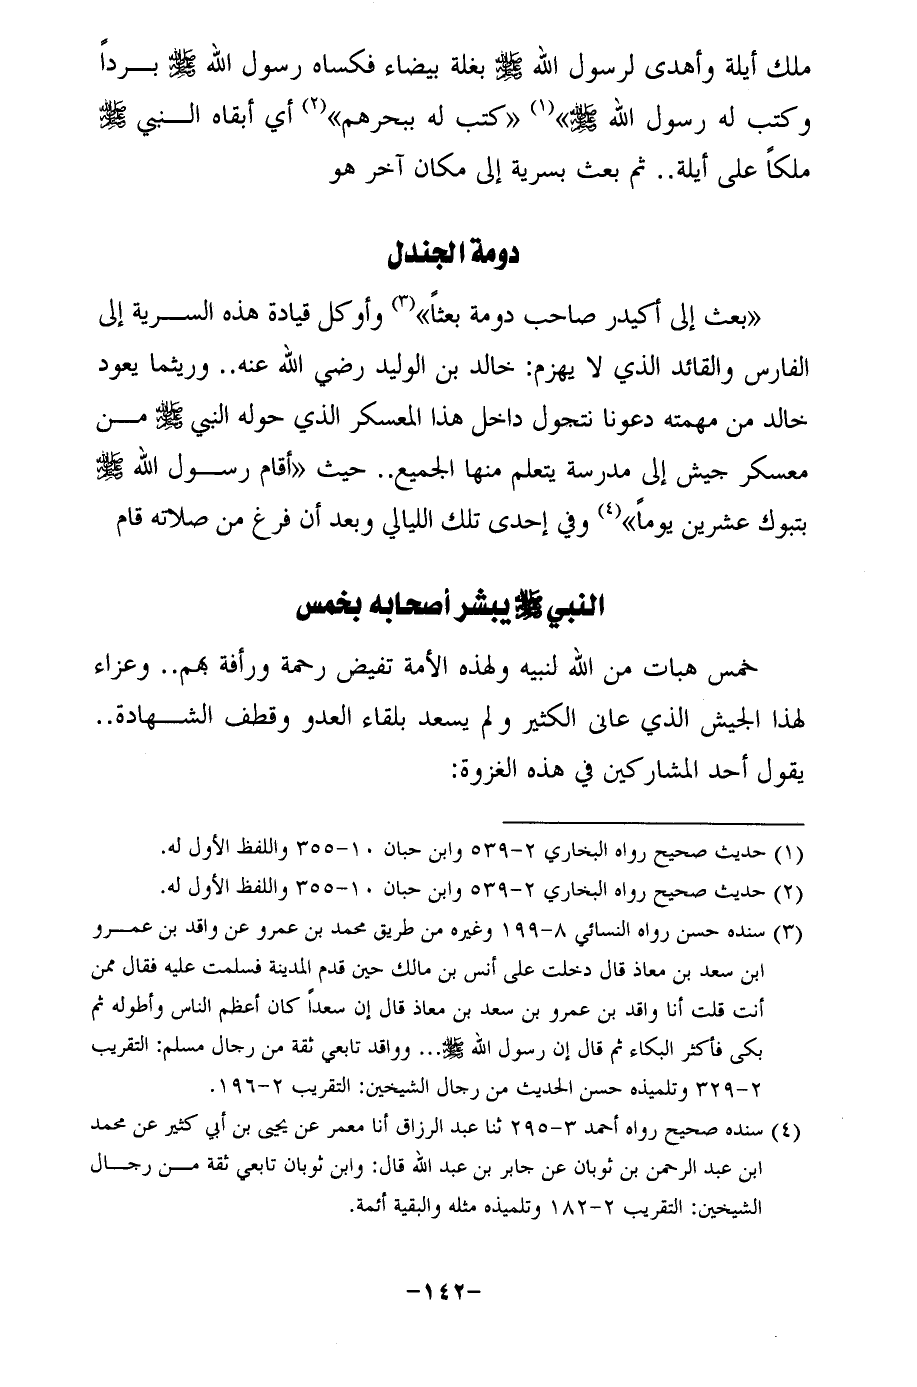 ملك أيلة وأهدى لرسول الله ﷺ بغلة بيضاء فكساه رسول الله ﷺ بـــرداً
وكتب له رسول الله ﷺ»(١) «كتب له ببحرهم»(٢) أي أبقاه الـــنبي ﷺ
ملكاً على أيلة.. ثم بعث بسرية إلى مكان آخر هو
دومة الجندل
«بعث إلى أكيدر صاحب دومة بعثاً»(٣) وأوكل قيادة هذه الســـرية إلى
الفارس والقائد الذي لا يهزم: خالد بن الوليد رضي الله عنه.. وريثما يعود
خالد من مهمته دعونا نتجول داخل هذا المعسكر الذي حوله النبي ﷺ مـــن
معسكر جيش إلى مدرسة يتعلم منها الجميع.. حيث «أقام رســـول الله ﷺ
بتبوك عشرين يوماً»(٤) وفي إحدى تلك الليالي وبعد أن فرغ من صلاته قام
النبي ﷺ يبشر أصحابه بخمس
خمس هبات من الله لنبيه ولهذه الأمة تفيض رحمة ورأفة بهم.. وعزاء
لهذا الجيش الذي عانى الكثير ولم يسعد بلقاء العدو وقطف الشـــهادة..
يقول أحد المشاركين في هذه الغزوة:
(١) حديث صحيح رواه البخاري ٢-٥٣٩ وابن حبان ١٠-٣٥٥ واللفظ الأول له.
(٢) حديث صحيح رواه البخاري ٢-٥٣٩ وابن حبان ١٠-٣٥٥ واللفظ الأول له.
(٣) سنده حسن رواه النسائي ٨-١٩٩ وغيره من طريق محمد بن عمرو عن واقد بن عمـــرو
ابن سعد بن معاذ قال دخلت على أنس بن مالك حين قدم المدينة فسلمت عليه فقال ممن
أنت قلت أنا واقد بن عمرو بن سعد بن معاذ قال إن سعداً كان أعظم الناس وأطوله ثم
بكى فأكثر البكاء ثم قال إن رسول الله ﷺ... وواقد تابعي ثقة من رجال مسلم: التقريب
٢-٣٢٩ وتلميذه حسن الحديث من رجال الشيخين: التقريب ٢-١٩٦.
(٤) سنده صحيح رواه أحمد ٣-٢٩٥ ثنا عبد الرزاق أنا معمر عن يحيى بن أبي كثير عن محمد
ابن عبد الرحمن بن ثوبان عن جابر بن عبد الله قال: وابن ثوبان تابعي ثقة مـــن رجـــال
الشيخين: التقريب ٢-١٨٢ وتلميذه مثله والبقية أئمة.
-١٤٢-